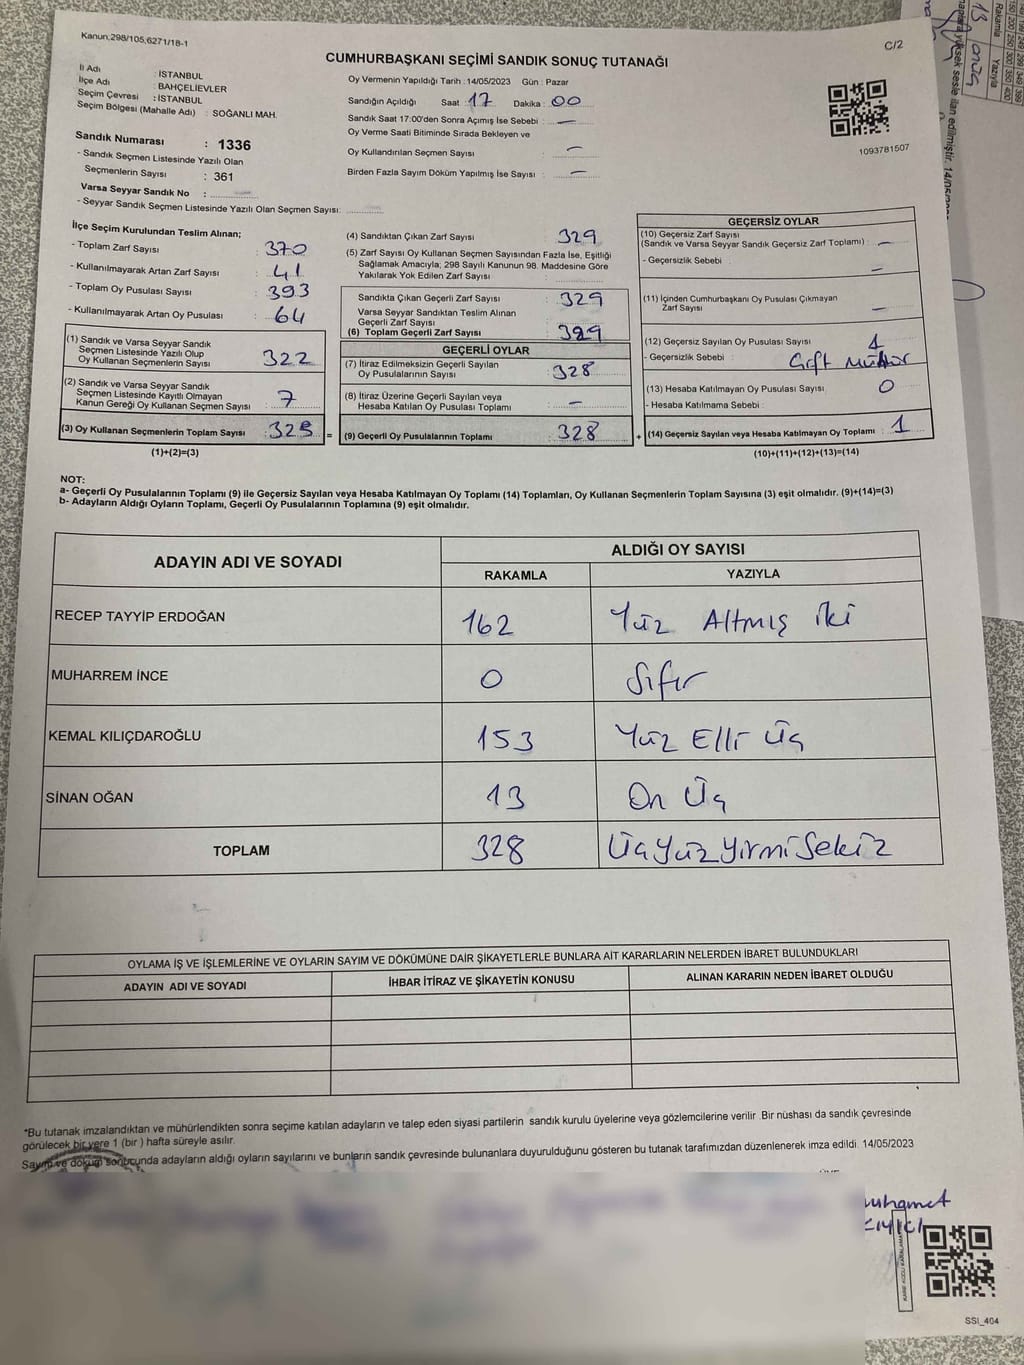 Kanun;298/105,6271/18-1
C/2
CUMHURBAŞKANI SEÇİMİ SANDIK SONUÇ TUTANAĞI
İl Adı : İSTANBUL
İlçe Adı : BAHÇELİEVLER
Seçim Çevresi : İSTANBUL
Seçim Bölgesi (Mahalle Adı) : SOĞANLI MAH.
Sandık Numarası : 1336
- Sandık Seçmen Listesinde Yazılı Olan
Seçmenlerin Sayısı : 361
Varsa Seyyar Sandık No :
- Seyyar Sandık Seçmen Listesinde Yazılı Olan Seçmen Sayısı:
Oy Vermenin Yapıldığı Tarih : 14/05/2023 Gün : Pazar
Sandığın Açıldığı Saat : 17 Dakika : 00
Sandık Saat 17:00'den Sonra Açımış İse Sebebi : —
Oy Verme Saati Bitiminde Sırada Bekleyen ve
Oy Kullandırılan Seçmen Sayısı : —
Birden Fazla Sayım Döküm Yapılmış İse Sayısı : —
1093781507
İlçe Seçim Kurulundan Teslim Alınan;
- Toplam Zarf Sayısı : 370
- Kullanılmayarak Artan Zarf Sayısı : 41
- Toplam Oy Pusulası Sayısı : 393
- Kullanılmayarak Artan Oy Pusulası : 64
(1) Sandık ve Varsa Seyyar Sandık
Seçmen Listesinde Yazılı Olup
Oy Kullanan Seçmenlerin Sayısı : 322
(2) Sandık ve Varsa Seyyar Sandık
Seçmen Listesinde Kayıtlı Olmayan
Kanun Gereği Oy Kullanan Seçmen Sayısı : 7
(3) Oy Kullanan Seçmenlerin Toplam Sayısı :
(1)+(2)=(3)
(4) Sandıktan Çıkan Zarf Sayısı : 329
(5) Zarf Sayısı Oy Kullanan Seçmen Sayısından Fazla İse, Eşitliği
Sağlamak Amacıyla; 298 Sayılı Kanunun 98. Maddesine Göre
Yakılarak Yok Edilen Zarf Sayısı :
Sandıkta Çıkan Geçerli Zarf Sayısı : 329
Varsa Seyyar Sandıktan Teslim Alınan
Geçerli Zarf Sayısı :
(6) Toplam Geçerli Zarf Sayısı : 329
GEÇERLİ OYLAR
(7) İtiraz Edilmeksizin Geçerli Sayılan
Oy Pusulalarının Sayısı : 328
(8) İtiraz Üzerine Geçerli Sayılan veya
Hesaba Katılan Oy Pusulası Toplamı : —
= (9) Geçerli Oy Pusulalarının Toplamı : 328
GEÇERSİZ OYLAR
(10) Geçersiz Zarf Sayısı
(Sandık ve Varsa Seyyar Sandık Geçersiz Zarf Toplamı) : —
- Geçersizlik Sebebi : —
(11) İçinden Cumhurbaşkanı Oy Pusulası Çıkmayan
Zarf Sayısı : —
(12) Geçersiz Sayılan Oy Pusulası Sayısı : 1
- Geçersizlik Sebebi : Çift Mühür
(13) Hesaba Katılmayan Oy Pusulası Sayısı : 0
- Hesaba Katılmama Sebebi :
+ (14) Geçersiz Sayılan veya Hesaba Katılmayan Oy Toplamı : 1
(10)+(11)+(12)+(13)=(14)
NOT:
a- Geçerli Oy Pusulalarının Toplamı (9) ile Geçersiz Sayılan veya Hesaba Katılmayan Oy Toplamı (14) Toplamları, Oy Kullanan Seçmenlerin Toplam Sayısına (3) eşit olmalıdır. (9)+(14)=(3)
b- Adayların Aldığı Oyların Toplamı, Geçerli Oy Pusulalarının Toplamına (9) eşit olmalıdır.
ADAYIN ADI VE SOYADI
ALDIĞI OY SAYISI
RAKAMLA YAZIYLA
RECEP TAYYİP ERDOĞAN 162 Yüz Altmış iki
MUHARREM İNCE 0 Sıfır
KEMAL KILIÇDAROĞLU 153 Yüz Elli Üç
SİNAN OĞAN 13 On Üç
TOPLAM 328 ÜçYüzYirmiSekiz
OYLAMA İŞ VE İŞLEMLERİNE VE OYLARIN SAYIM VE DÖKÜMÜNE DAİR ŞİKAYETLERLE BUNLARA AİT KARARLARIN NELERDEN İBARET BULUNDUKLARI
ADAYIN ADI VE SOYADI İHBAR İTİRAZ VE ŞİKAYETİN KONUSU ALINAN KARARIN NEDEN İBARET OLDUĞU
*Bu tutanak imzalandıktan ve mühürlendikten sonra seçime katılan adayların ve talep eden siyasi partilerin sandık kurulu üyelerine veya gözlemcilerine verilir .Bir nüshası da sandık çevresinde
görülecek bir yere 1 (bir ) hafta süreyle asılır.
Sayım ve döküm sonucunda adayların aldığı oyların sayılarını ve bunların sandık çevresinde bulunanlara duyurulduğunu gösteren bu tutanak tarafımızdan düzenlenerek imza edildi. 14/05/2023
SSI_404